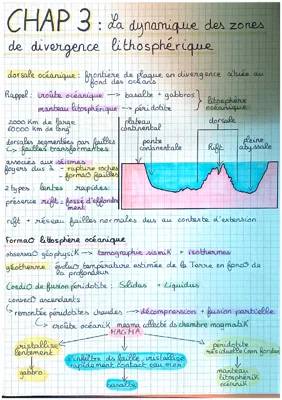 CHAP 3 : La dynamique des zones
de divergence lithosphérique
dorsale océanique : frontière de plaque en divergence située au
fond des océans
Rappel : croûte océanique → basalte + gabbros
manteau lithosphérique → péridotite
lithosphère
océanique
2000 Km de large
60000 Km de long
dorsales segmentées par failles
↳ failles transformantes
associés aux séismes
foyers dus à → rupture roches
format° failles
2 types : lentes rapides
présence rift : fossé d'effondrement
plateau
continental
pente
continentale
dorsale
Rift
plaine
abyssale
rift + réseau failles normales dus au contexte d'extension
Format° lithosphère océanique
observat° géophysik → tomographie sismik + isothermes
géotherme : évolut° température estimée de la Terre en fonct° de
la profondeur
Condit° de fusion péridotite : Solidus + Liquidus
convect° ascendants
↳ remontée péridotites chaudes → décompression + fusion partielle
↳ croûte océanik magma collecté ds chambre magmatik
MAGMA
cristallise
lentement
↓
gabbro
s'infiltre ds faille, cristallise
rapidement contact eau mer
↓
basalte
péridotite
résiduelle
↓
manteau
lithosphérik
océanik